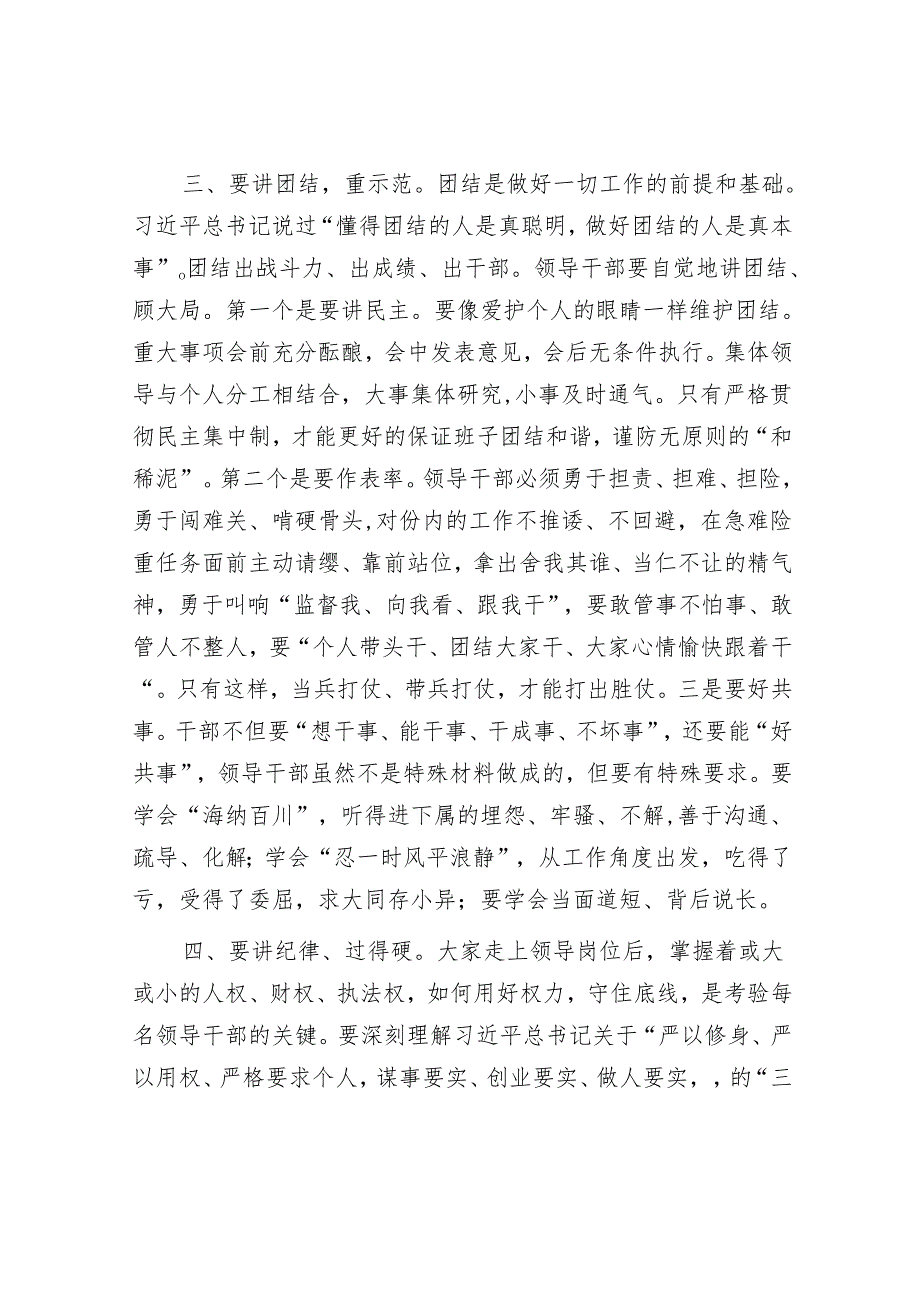 三、要讲团结，重示范。团结是做好一切工作的前提和基础。
习近平总书记说过“懂得团结的人是真聪明，做好团结的人是真本
事”。团结出战斗力、出成绩、出干部。领导干部要自觉地讲团结、
顾大局。第一个是要讲民主。要像爱护个人的眼睛一样维护团结。
重大事项会前充分酝酿，会中发表意见，会后无条件执行。集体领
导与个人分工相结合，大事集体研究,小事及时通气。只有严格贯
彻民主集中制，才能更好的保证班子团结和谐，谨防无原则的“和
稀泥”。第二个是要作表率。领导干部必须勇于担责、担难、担险，
勇于闯难关、啃硬骨头,对份内的工作不推诿、不回避，在急难险
重任务面前主动请缨、靠前站位，拿出舍我其谁、当仁不让的精气
神，勇于叫响“监督我、向我看、跟我干”，要敢管事不怕事、敢
管人不整人，要“个人带头干、团结大家干、大家心情愉快跟着干
“。只有这样，当兵打仗、带兵打仗，才能打出胜仗。三是要好共
事。干部不但要“想干事、能干事、干成事、不坏事”，还要能“好
共事”，领导干部虽然不是特殊材料做成的，但要有特殊要求。要
学会“海纳百川”，听得进下属的埋怨、牢骚、不解,善于沟通、
疏导、化解；学会“忍一时风平浪静”，从工作角度出发，吃得了
亏，受得了委屈，求大同存小异；要学会当面道短、背后说长。
四、要讲纪律、过得硬。大家走上领导岗位后，掌握着或大
或小的人权、财权、执法权，如何用好权力，守住底线，是考验每
名领导干部的关键。要深刻理解习近平总书记关于“严以修身、严
以用权、严格要求个人，谋事要实、创业要实、做人要实，，的“三